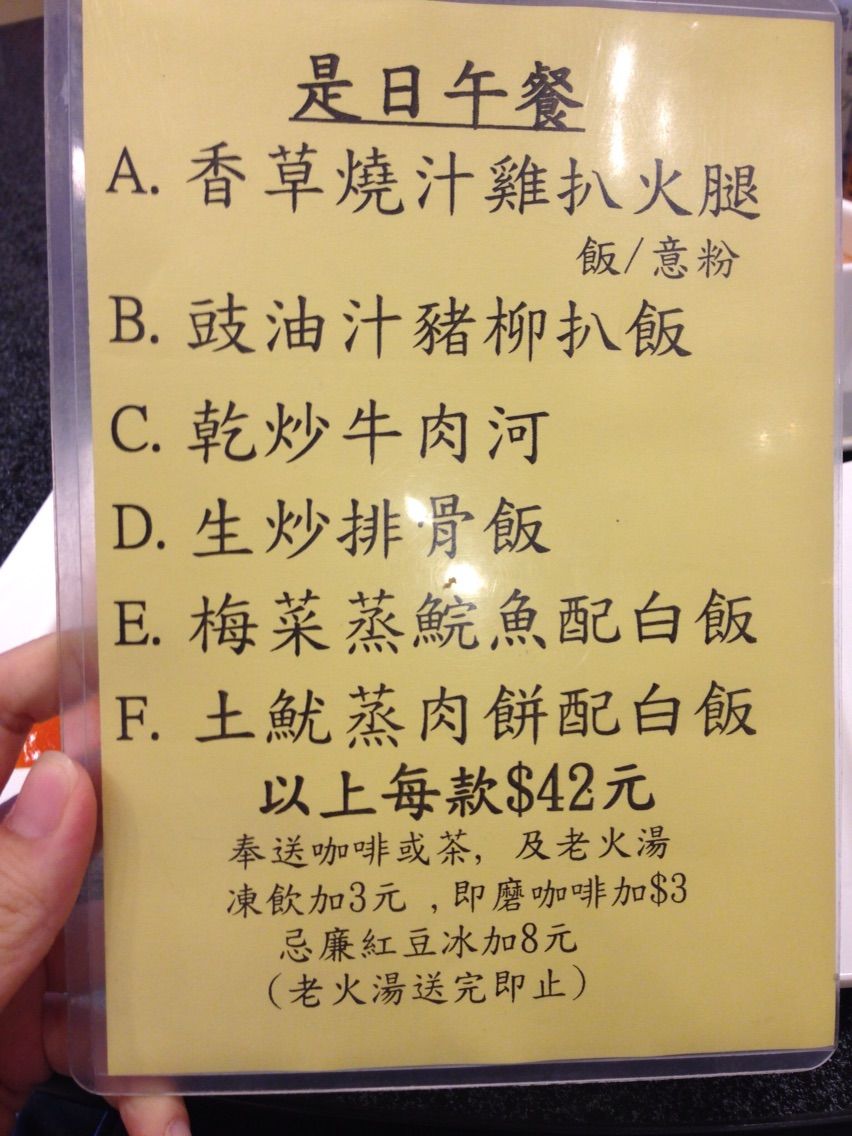 是日午餐
A. 香草燒汁雞扒火腿
飯/意粉
B. 豉油汁豬柳扒飯
C. 乾炒牛肉河
D. 生炒排骨飯
E. 梅菜蒸鯇魚配白飯
F. 土魷蒸肉餅配白飯
以上每款$42元
奉送咖啡或茶, 及老火湯
凍飲加3元 ,即磨咖啡加$3
忌廉紅豆冰加8元
(老火湯送完即止)